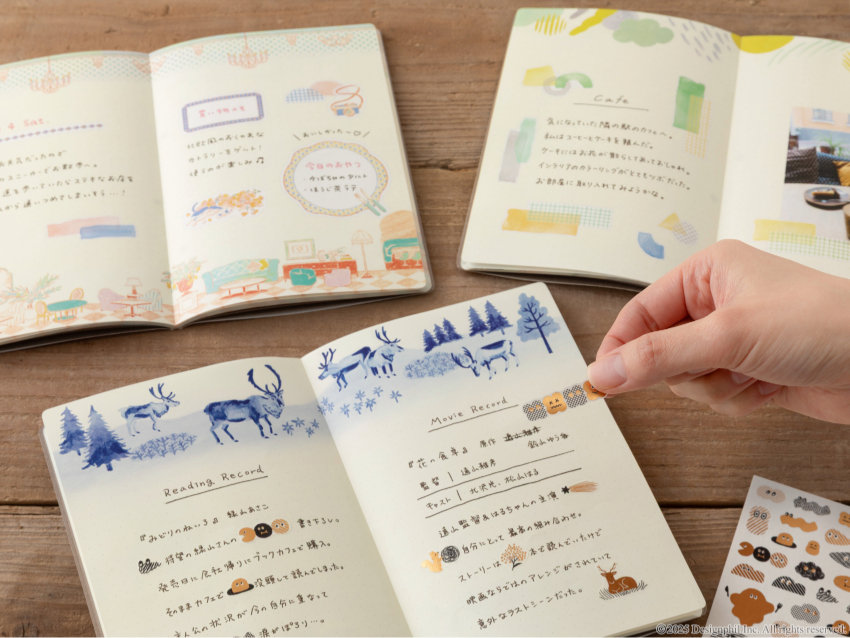 4 Sat.
買い物メモ
北欧風のおしゃれな
カトラリーをゲット!
使うのが楽しみ♫
おいしかった〜
今日のおやつ
かぼちゃのタルト
ほうじ茶ラテ
Cafe
気になっていた隣の駅のカフェへ。
私はコーヒーとケーキを頼んだ。
ケーキにはお花が散らしてあっておしゃれ。
インテリアのカラーリングがとてもツボだった。
お部屋に取り入れてみようかな。
Reading Record
『みどりの私いろ』 緑山あさこ
待望の緑山さんの 書き下ろし。
発売日に会社帰りにブックカフェで購入。
そのままカフェで 没頭して読んでしまった。
主人公の状況が今の自分に重なって
涙がぽろり…。
Movie Record
『花の食卓』 原作 遠山雅彦
監督 遠山雅彦 鈴山ゆう
キャスト 北沢光、松山はる
遠山監督&はるちゃんの主演
自分にとって最高の組み合わせ。
ストーリーは 本で読んでいたけど
映画ならではのアレンジがされていて
意外なラストシーンだった。
©2025 Designphil Inc. All rights reserved.